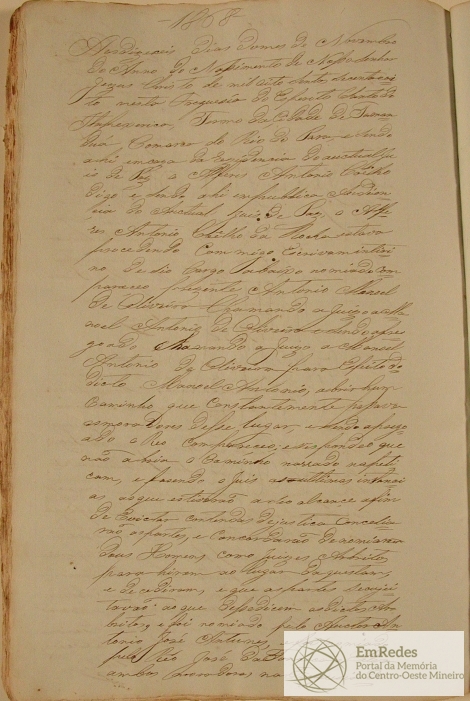 -1868-
dias do mes de Novembro
do Anno do Nascimento de Nosso Senhor
Jezus Cristo de mil oito centos secenta e oi
to nesta Freguesia do Espirito Santo de
Itapecirica, Termo da Cidade de Taman
dua, Comarca do Rio do Para, e sendo
ahi em caza da rezidencia do actual Ju
is de Paz o Alferes Antonio Coelho
digo e sendo ahi em publica Audien
cia do Actual Juis de Paz o Alfe
res Antonio Coelho da Rocha estava
procedendo comigo Escrivam
no de seo Cargo abaixo nomiado com
pareceo prezente Antonio
de Oliveira Chamando a Juizo a Ma
noel Antonio de Oliveira e sendo apre
goado a Juizo a Manoel
Antonio de Oliveira para Efeito do
dicto Manoel Antonio, abrir hum
Caminho que Constantemente
os moradores desse lugar, e sendo aprego
ado o Reo Compareceo, e respondeo que
não abria o Caminho
e fazendo o Juis as
as que estiverão a seo alcance afim
de Evictar contendas de justica Concelia
rão as partes, e Concordarão de nomiarem
dous Homens, como Juizes Arbitros
para hirem ao lugar da questam,
e decedirem, e que as partes
tarão ao que Desedirem os dictos Ar
bitros, e foi nomiado pelo Author An
tonio José Antunes
pelo Reo José
ambos
EmRedes
Portal da Memória
do Centro-Oeste Mineiro